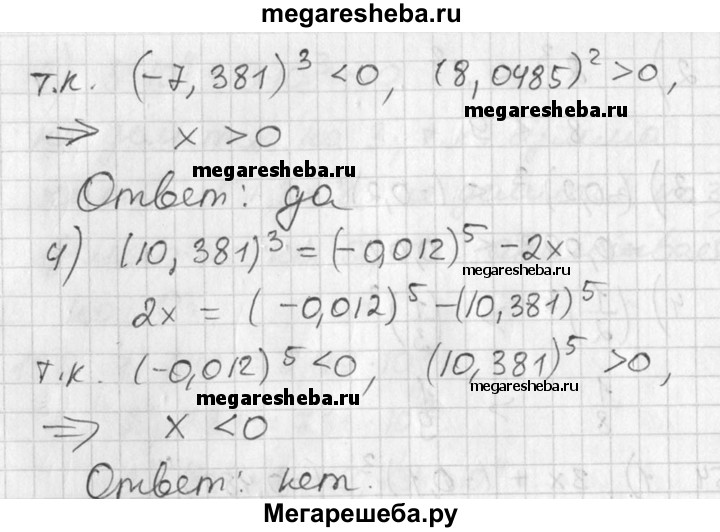 megaresheba.ru
т.к. (-7,381)³ <0, (8,0485)² >0,
megaresheba.ru
⇒ x >0
megaresheba.ru
Ответ: да
4) (10,381)³ = (-0,012)⁵ -2x
megaresheba.ru
2x = (-0,012)⁵ -(10,381)⁵
т.к. (-0,012)⁵ <0, (10,381)⁵ >0,
megaresheba.ru
megaresheba.ru
⇒ x <0
Ответ: нет.
Мегарешеба.ру